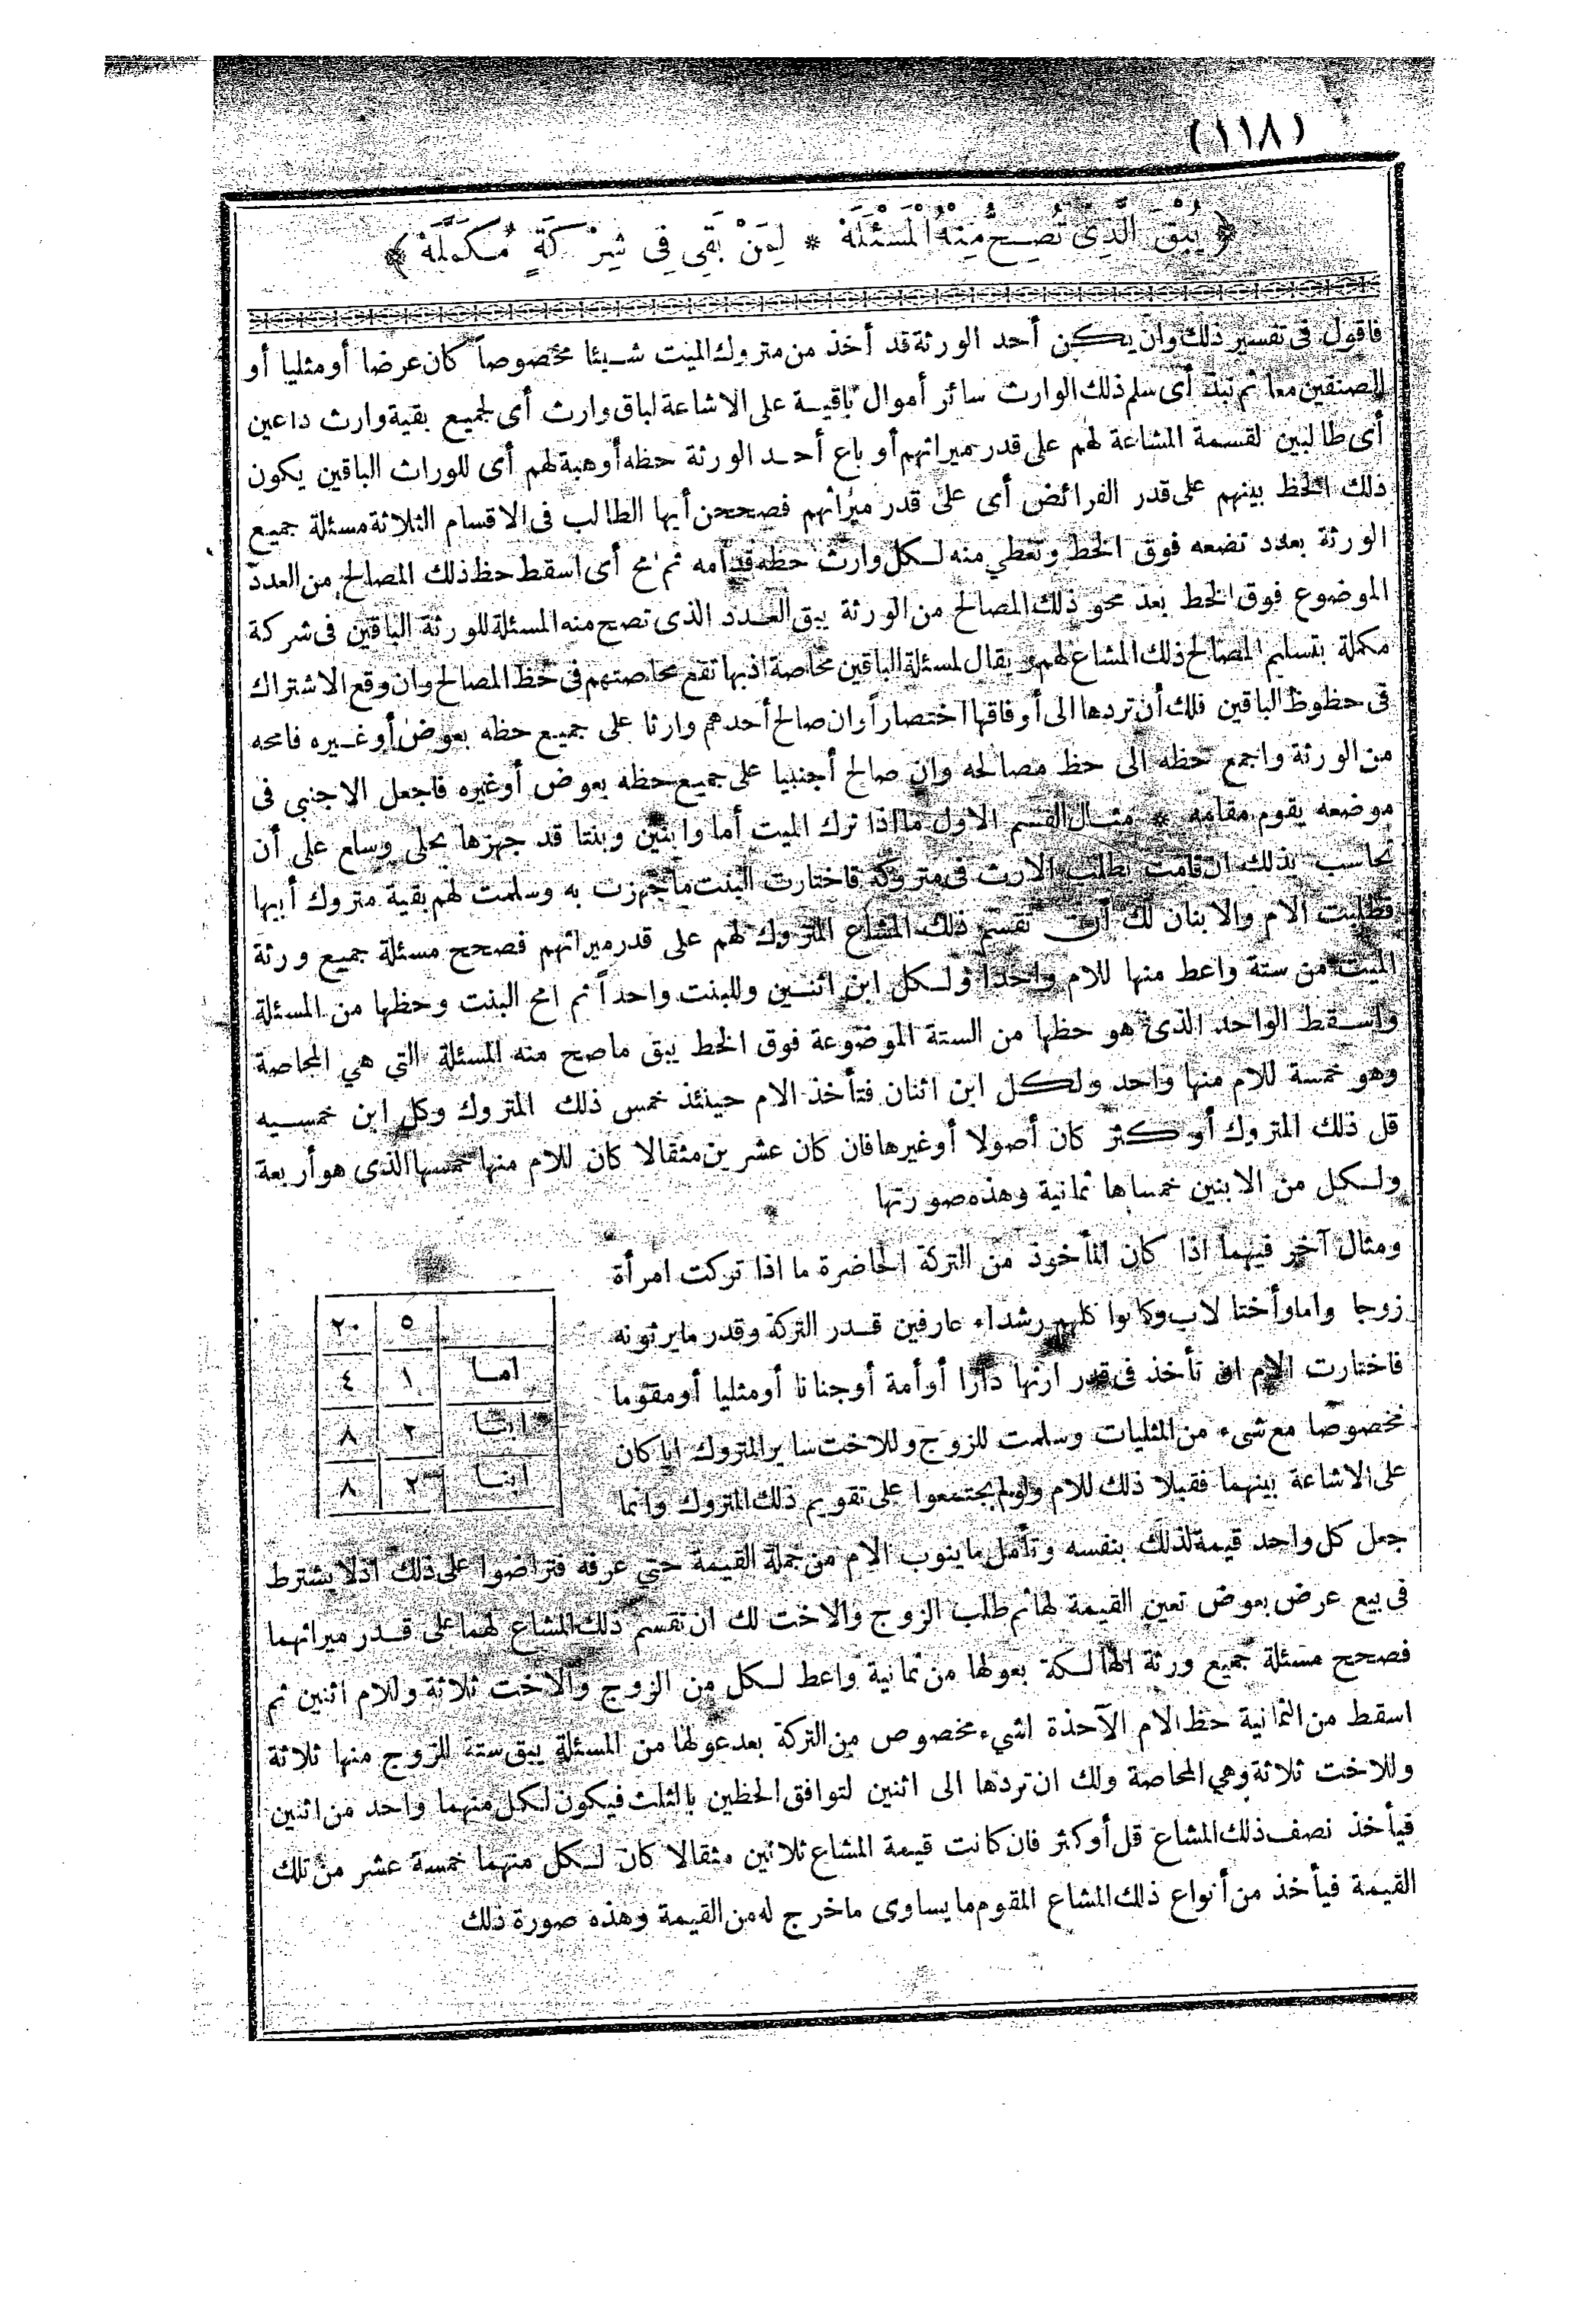 (١١٨)
﴿ يُبْقَ الَّذِى تُصِحُّ مِنْهُ الْمَسْئَلَهْ * لِمَنْ بَقِى فِى شِرْكَةٍ مُكَمَّلَهْ ﴾
فاقول فى تفسير ذلك وان يكن أحد الورثة قد أخذ من متروك الميت شيئا مخصوصاً كان عرضا أو مثليا أو
الصنفين معا ثم نبذ أى سلم ذلك الوارث سائر أموال باقية على الاشاعة لباق وارث أى لجميع بقية وارث داعين
أى طالبين لقسمة المشاعة لهم على قدر ميراثهم أو باع أحد الورثة حظه أو هبة لهم أى للوراث الباقين يكون
ذلك الحظ بينهم على قدر الفرائض أى على قدر ميراثهم فصححن أيها الطالب فى الاقسام الثلاثة مسئلة جميع
الورثة بعدد تضعه فوق الخط وتعطي منه لكل وارث حظه قدامه ثم امح أى اسقط حظ ذلك المصالح من العدد
الموضوع فوق الخط بعد محو ذلك المصالح من الورثة يبق العدد الذى تصح منه المسئلة للورثة الباقين فى شركة
مكملة بتسليم المصالح ذلك المشاع لهم ويقال لمسئلة الباقين محاصة اذبها تقع محاصتهم فى حظ المصالح وان وقع الاشتراك
فى حظوظ الباقين فلك أن تردها الى أوفاقها اختصاراً وان صالح أحدهم وارثا على جميع حظه بعوض أو غيره فامحه
من الورثة واجمع حظه الى حظ مصالحه وان صالح أجنبيا على جميع حظه بعوض أوغيره فاجعل الاجنبى فى
موضعه يقوم مقامه * مثال القسم الاول ما اذا ترك الميت أما وابنين وبنتا قد جهزها بحلى وسلع على أن
تحاسب بذلك ان قامت بطلب الارث فى متروكه فاختارت البنت ما جهزت به وسلمت لهم بقية متروك أبيها
فطلبت الام والابنان لك أن تقسم ذلك المشاع المتروك لهم على قدر ميراثهم فصحح مسئلة جميع ورثة
الميت من ستة واعط منها للام واحداً ولكل ابن اثنين وللبنت واحداً ثم امح البنت وحظها من المسئلة
واسقط الواحد الذى هو حظها من الستة الموضوعة فوق الخط يبق ماصح منه المسئلة التي هي المحاصة
وهو خمسة للام منها واحد ولكل ابن اثنان فتأخذ الام حينئذ خمس ذلك المتروك وكل ابن خمسيه
قل ذلك المتروك أو كثر كان أصولا أو غيرها فان كان عشرين مثقالا كان للام منها خمسها الذى هو أربعة
ولكل من الابنين خمساها ثمانية وهذه صورتها
ومثال آخر فيهما اذا كان المأخوذ من التركة الحاضرة ما اذا تركت امرأة
زوجا واما وأختا لاب وكانوا كلهم رشداء عارفين قدر التركة وقدر ما يرثونه
فاختارت الام ان تأخذ فى قدر ارثها دارا أو أمة أو جنانا أو مثليا أو مقوما
مخصوصا مع شىء من المثليات وسلمت للزوج وللاخت ساير المتروك ايا كان
على الاشاعة بينهما فقبلا ذلك للام ولو لم يجتمعوا على تقويم ذلك المتروك وانما
٥ ٢٠
اما ١ ٤
ابنا ٢ ٨
ابنا ٢ ٨
جعل كل واحد قيمة لذلك بنفسه وتأمل ما ينوب الام من جملة القيمة حتى عرفه فتراضوا على ذلك اذلا يشترط
فى بيع عرض بعوض تعين القيمة لها ثم طلب الزوج والاخت لك ان تقسم ذلك المشاع لهما على قدر ميراثهما
فصحح مسئلة جميع ورثة الهالكة بعولها من ثمانية واعط لكل من الزوج والاخت ثلاثة وللام اثنين ثم
اسقط من الثمانية حظ الام الآخذة لشيء مخصوص من التركة بعد عولها من المسئلة يبق ستة للزوج منها ثلاثة
وللاخت ثلاثة وهي المحاصة ولك ان تردها الى اثنين لتوافق الحظين بالثلث فيكون لكل منهما واحد من اثنين
فيأخذ نصف ذلك المشاع قل أو كثر فان كانت قيمة المشاع ثلاثين مثقالا كان لكل منهما خمسة عشر من تلك
القيمة فيأخذ من أنواع ذلك المشاع المقوم ما يساوى ما خرج له من القيمة وهذه صورة ذلك